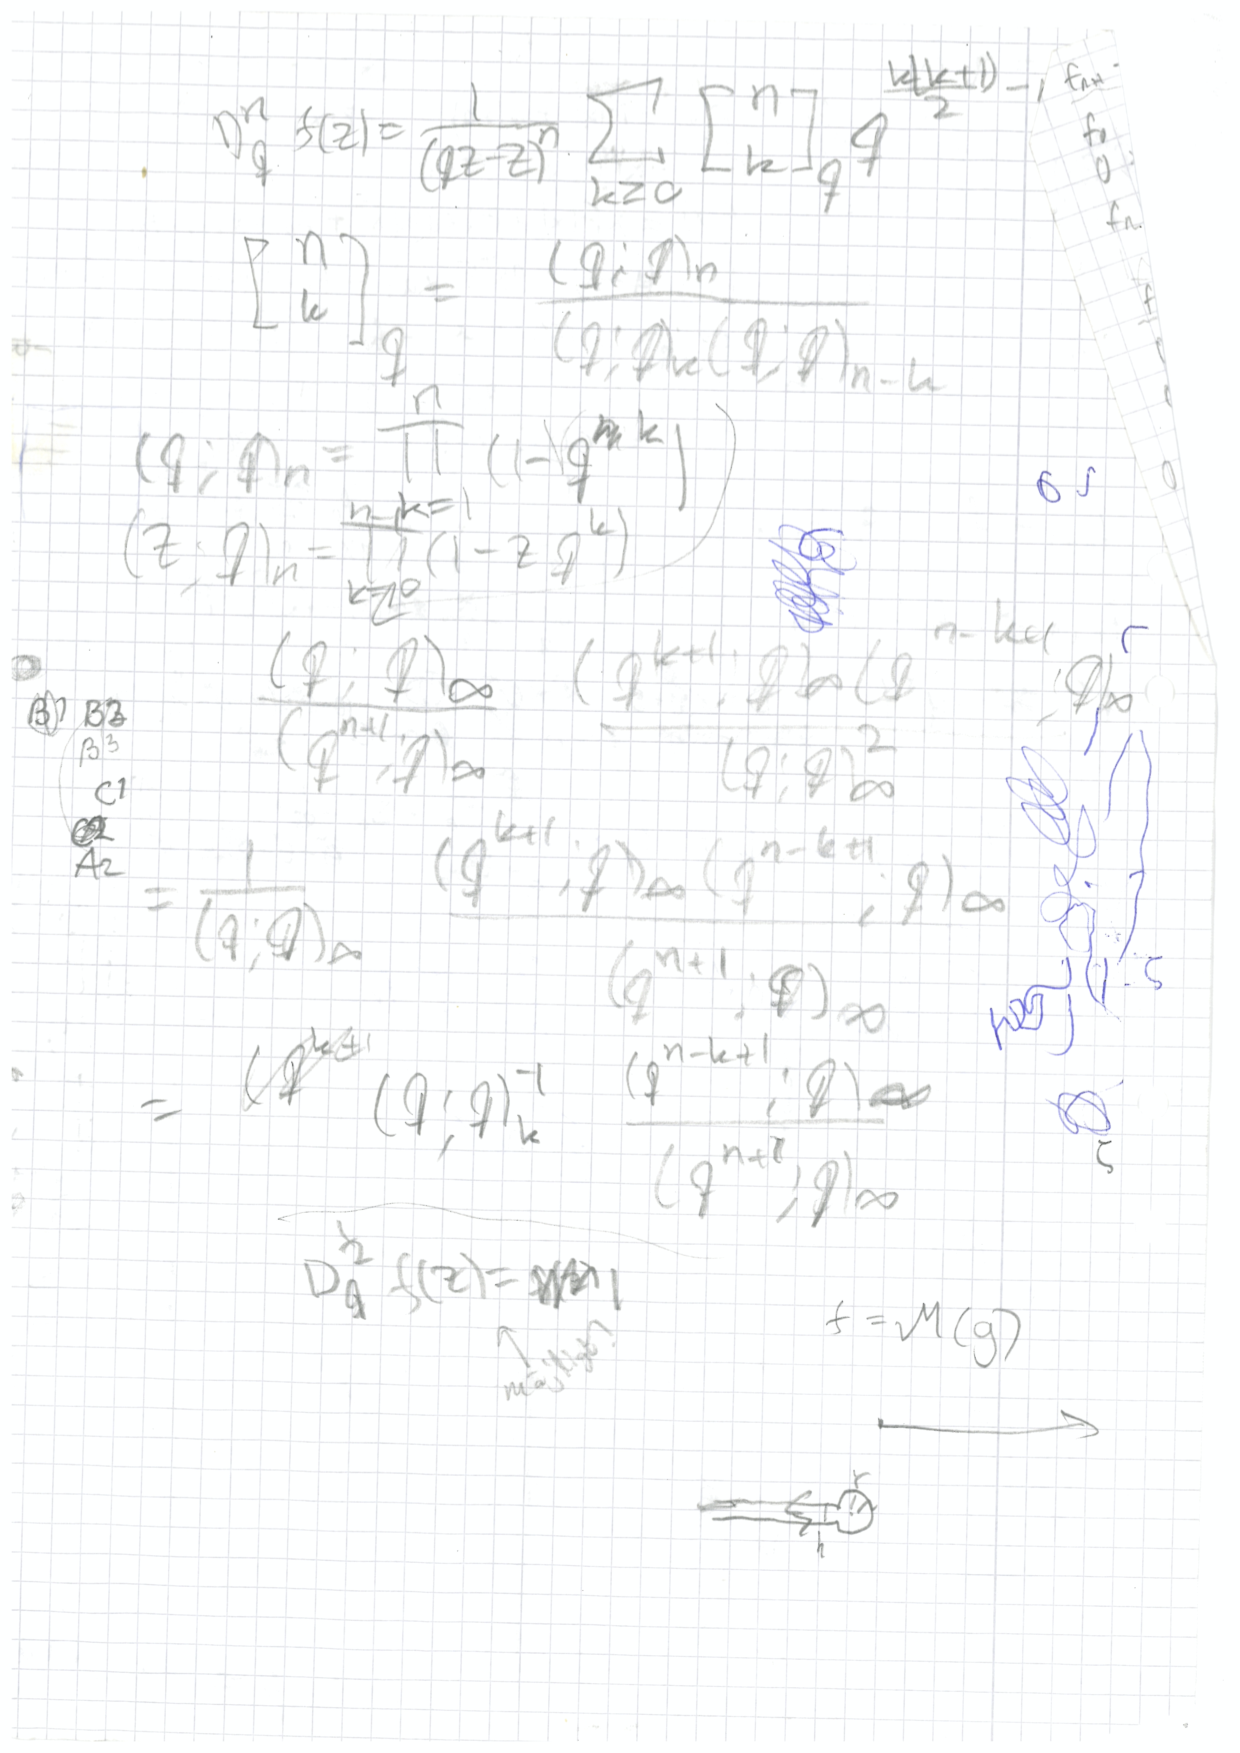 D_q^n f(z) = \frac{1}{(qz-z)^n} \sum_{k=0} \begin{bmatrix} n \\ k \end{bmatrix}_q q^{\frac{k(k+1)}{2} - 1}
f_{n+1}
f_0
0
f_n
\begin{bmatrix} n \\ k \end{bmatrix}_q = \frac{(q;q)_n}{(q;q)_k (q;q)_{n-k}}
(q;q)_n = \prod_{k=1}^{n} (1-q^k)
(z;q)_n = \prod_{k=0}^{n-1} (1-zq^k)
\frac{(q;q)_\infty}{(q^{n+1};q)_\infty} \frac{(q^{k+1};q)_\infty (q^{n-k+1};q)_\infty}{(q;q)_\infty^2}
B1 B2
B3
C1
A2
= \frac{1}{(q;q)_\infty} \frac{(q^{k+1};q)_\infty (q^{n-k+1};q)_\infty}{(q^{n+1};q)_\infty}
= (q;q)_k^{-1} \frac{(q^{n-k+1};q)_\infty}{(q^{n+1};q)_\infty}
D_q^n f(z) =
f = M(g)
r
h